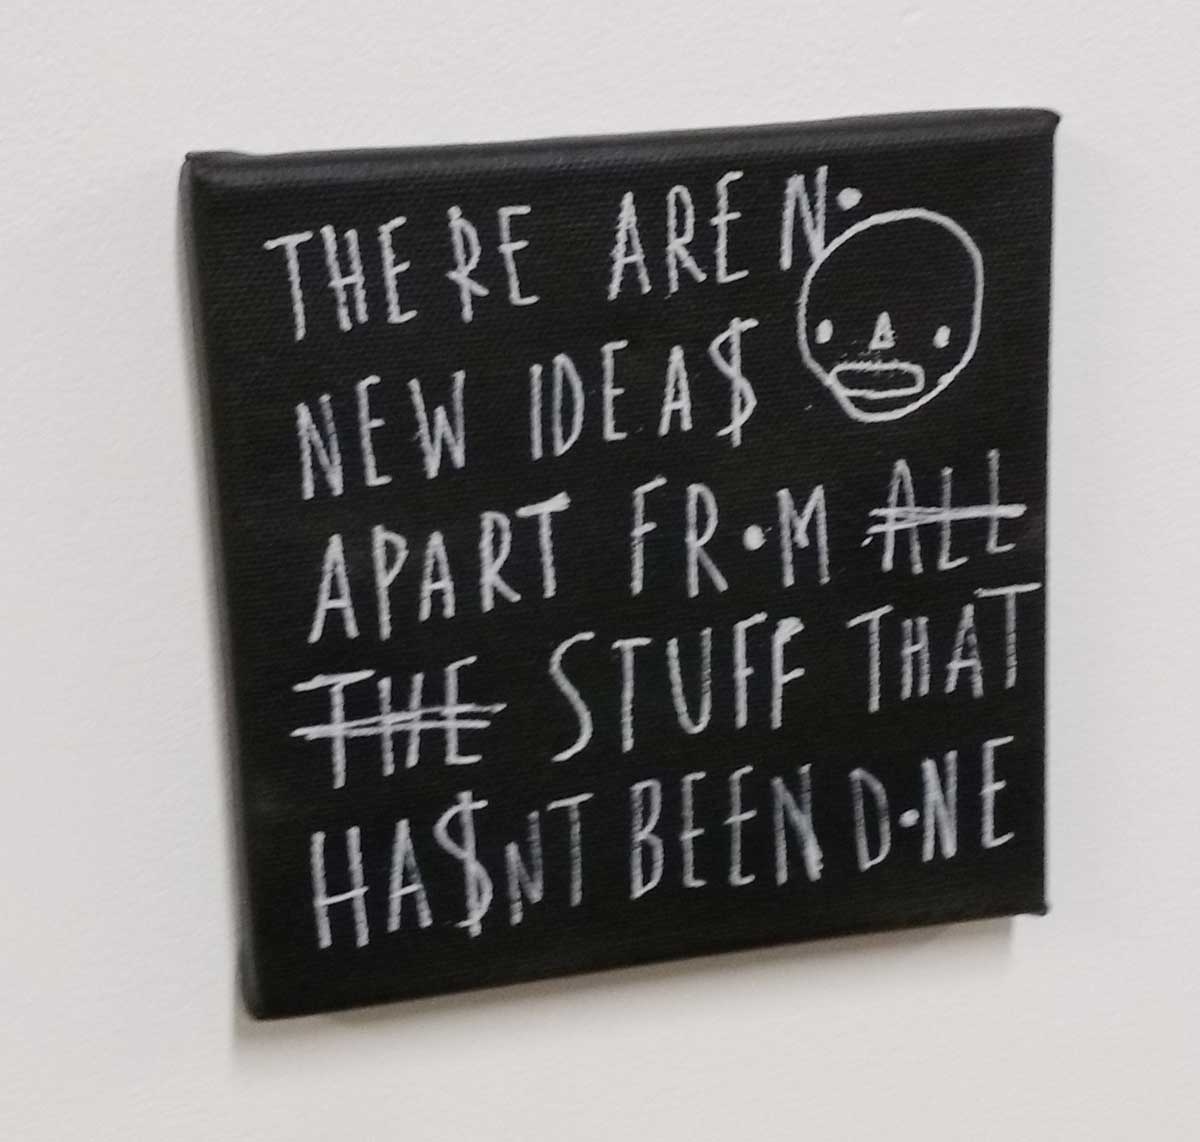 THERE ARE N•
NEW IDEA$
APART FR•M ALL
THE STUFF THAT
HA$NT BEEN D•NE